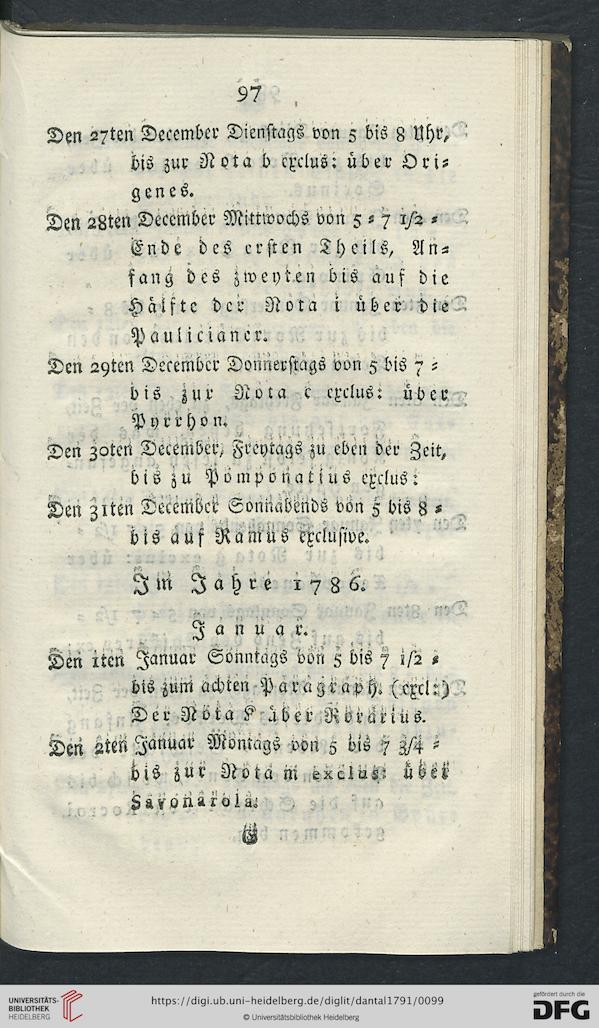 97
Den 27ten December Dienstags von 5 bis 8 Uhr,
bis zur Nota b exclus: über Ori⸗
genes.
Den 28ten December Mittwochs von 5 ⸗ 7 1/2 ⸗
Ende des ersten Theils, An⸗
fang des zweyten bis auf die
Hälfte der Nota i über die
Paulicianer.
Den 29ten December Donnerstags von 5 bis 7 ⸗
bis zur Nota c exclus: über
Pyrrhon.
Den 30ten December, Freytags zu eben der Zeit,
bis zu Pomponatius exclus:
Den 31ten December Sonnabends von 5 bis 8 ⸗
bis auf Ramus exclusive.
Im Jahre 1786.
Januar.
Den 1ten Januar Sonntags von 5 bis 7 1/2 ⸗
bis zum achten Paragraph. (excl:)
Der Nota K über Rorarius.
Den 2ten Januar Montags von 5 bis 7 3/4 ⸗
bis zur Nota m exclus: über
Savonarola.
G
UNIVERSITÄTS-
BIBLIOTHEK
HEIDELBERG
https://digi.ub.uni-heidelberg.de/diglit/dantal1791/0099
© Universitätsbibliothek Heidelberg
gefördert durch die
DFG